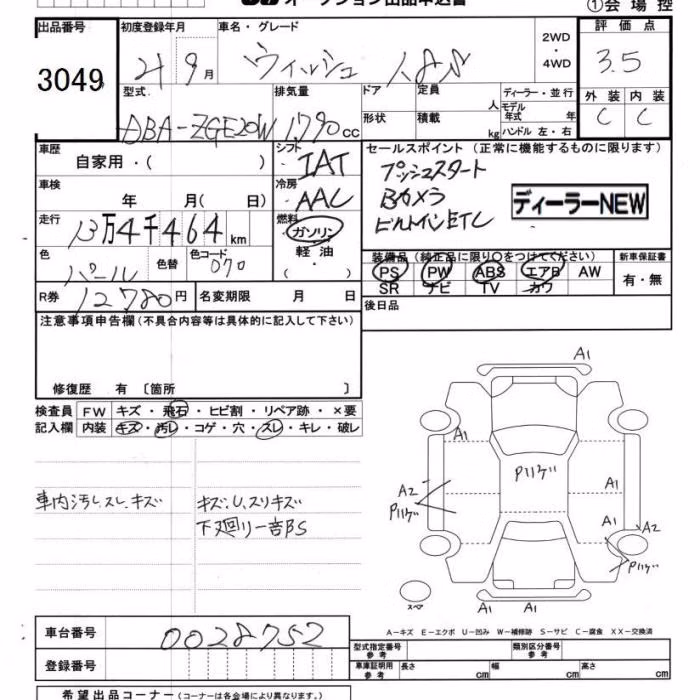 オークション出品申込書
①会場控
出品番号 初度登録年月 車名・グレード 評価点
3049
21 9月 ウィッシュ 1.8S 2WD・4WD 3.5
型式 排気量 ドア 定員 人 ディーラー・並行 外装 内装
ABA-ZGE20W 1,790cc 形状 積載 kg モデル年式 年 ハンドル 左・右 C C
車歴 自家用・( ) シフト IAT セールスポイント(正常に機能するものに限ります)
プッシュスタート
車検 年 月( 日) 冷房 AAC Bカメラ
ディーラーNEW
ビルトインETC
走行 13万4千464km 燃料 ガソリン・軽油・( )
装備品(純正品に限り○をつけてください) 新車保証書
色 パール 色替 色コード 070
PS PW ABS エアB AW 有・無
SR ナビ TV カワ
R券 12780円 名変期限 月 日
後日品
注意事項申告欄(不具合内容等は具体的に記入して下さい)
修復歴 有 〔箇所 〕
検査員 FW キズ・飛石・ヒビ割・リペア跡・×要
記入欄 内装 キズ・汚レ・コゲ・穴・スレ・キレ・破レ
車内汚レスレキズ
キズ、U、スリキズ
下廻り一部S
A1
A1
Pハゲ
A2
Pハゲ
A1
A1
A2
Pハゲ
スペア
A1 A1
A-キズ E-エクボ U-凹み W-補修跡 S-サビ C-腐食 XX-交換済
車台番号 0028752
型式指定番号 参考 類別区分番号 参考
登録番号
車庫証明用 参考 長さ cm 幅 cm 高さ cm
希望出品コーナー(コーナーは各会場により異なります。)